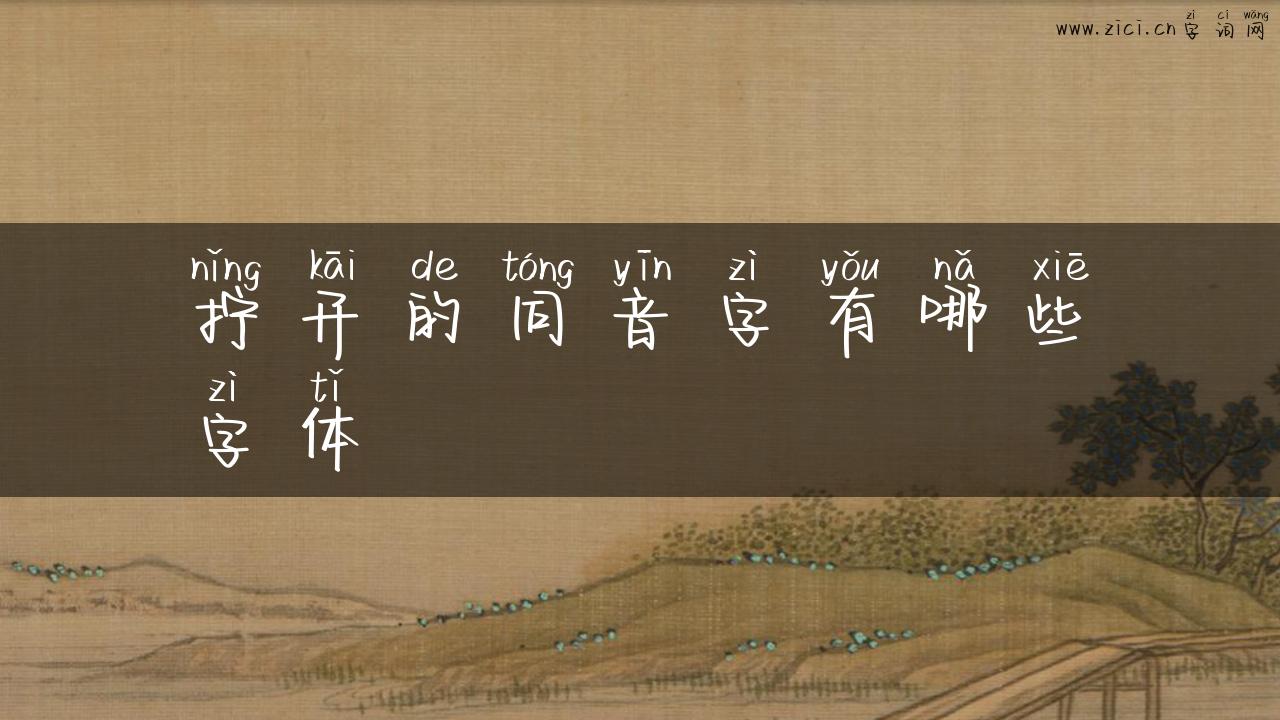 zì cí wǎng
www.zici.cn字词网
nǐng kāi de tóng yīn zì yǒu nǎ xiē
拧开的同音字有哪些
zì tǐ
字体